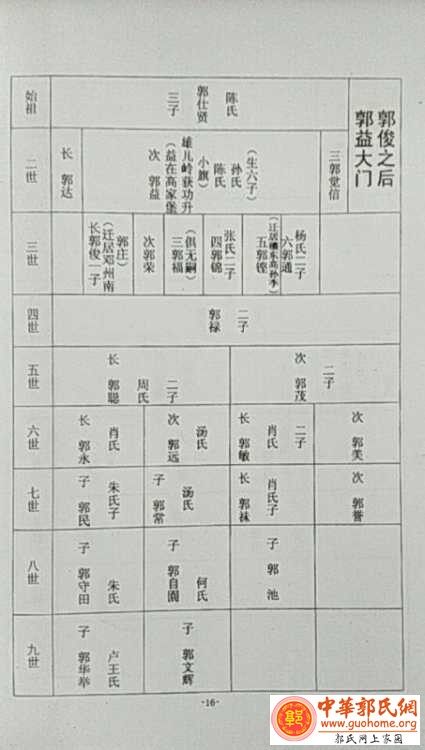 郭俊之后
郭益大门
始祖
郭仕贤 陈氏
三子
二世
长 郭达
次 郭益
（益在高家堡
雄儿岭获功升
小旗）
陈氏
孙氏
（生六子）
三郭觉信
三世
长郭俊一子
（迁居邓州南
郭庄）
次郭荣
三郭福
（俱无嗣）
四郭锦
张氏二子
五郭铿
六郭通
杨氏二子
四世
郭禄 二子
五世
长 郭聪
周氏 二子
次 郭茂
二子
六世
长 郭永
肖氏
次 郭远
汤氏
长 郭敏
肖氏 二子
次 郭美
七世
子 郭民
朱氏子
子 郭常
汤氏
长 郭袜
肖氏子
次 郭誉
八世
子 郭守田
朱氏
子 郭自園
何氏
子 郭池
九世
子 郭华举
卢王氏
子 郭文辉
-16-
中華郭氏網
www.guohome.org
郭氏网上家园